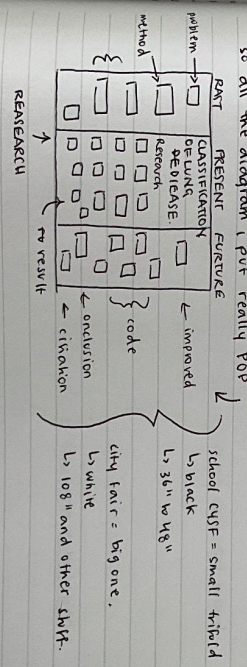 so all the diagram i put really POP
problem
method
PAST PRESENT FURTURE
CLASSIFICATION
OF LUNG
DEDIEASE.
Research
REASEARCH
to result
improved
code
onclusion
citiation
school CYSF = small trifold
↳ black
↳ 36" to 48"
city fair = big one.
↳ white
↳ 108" and other stuff.